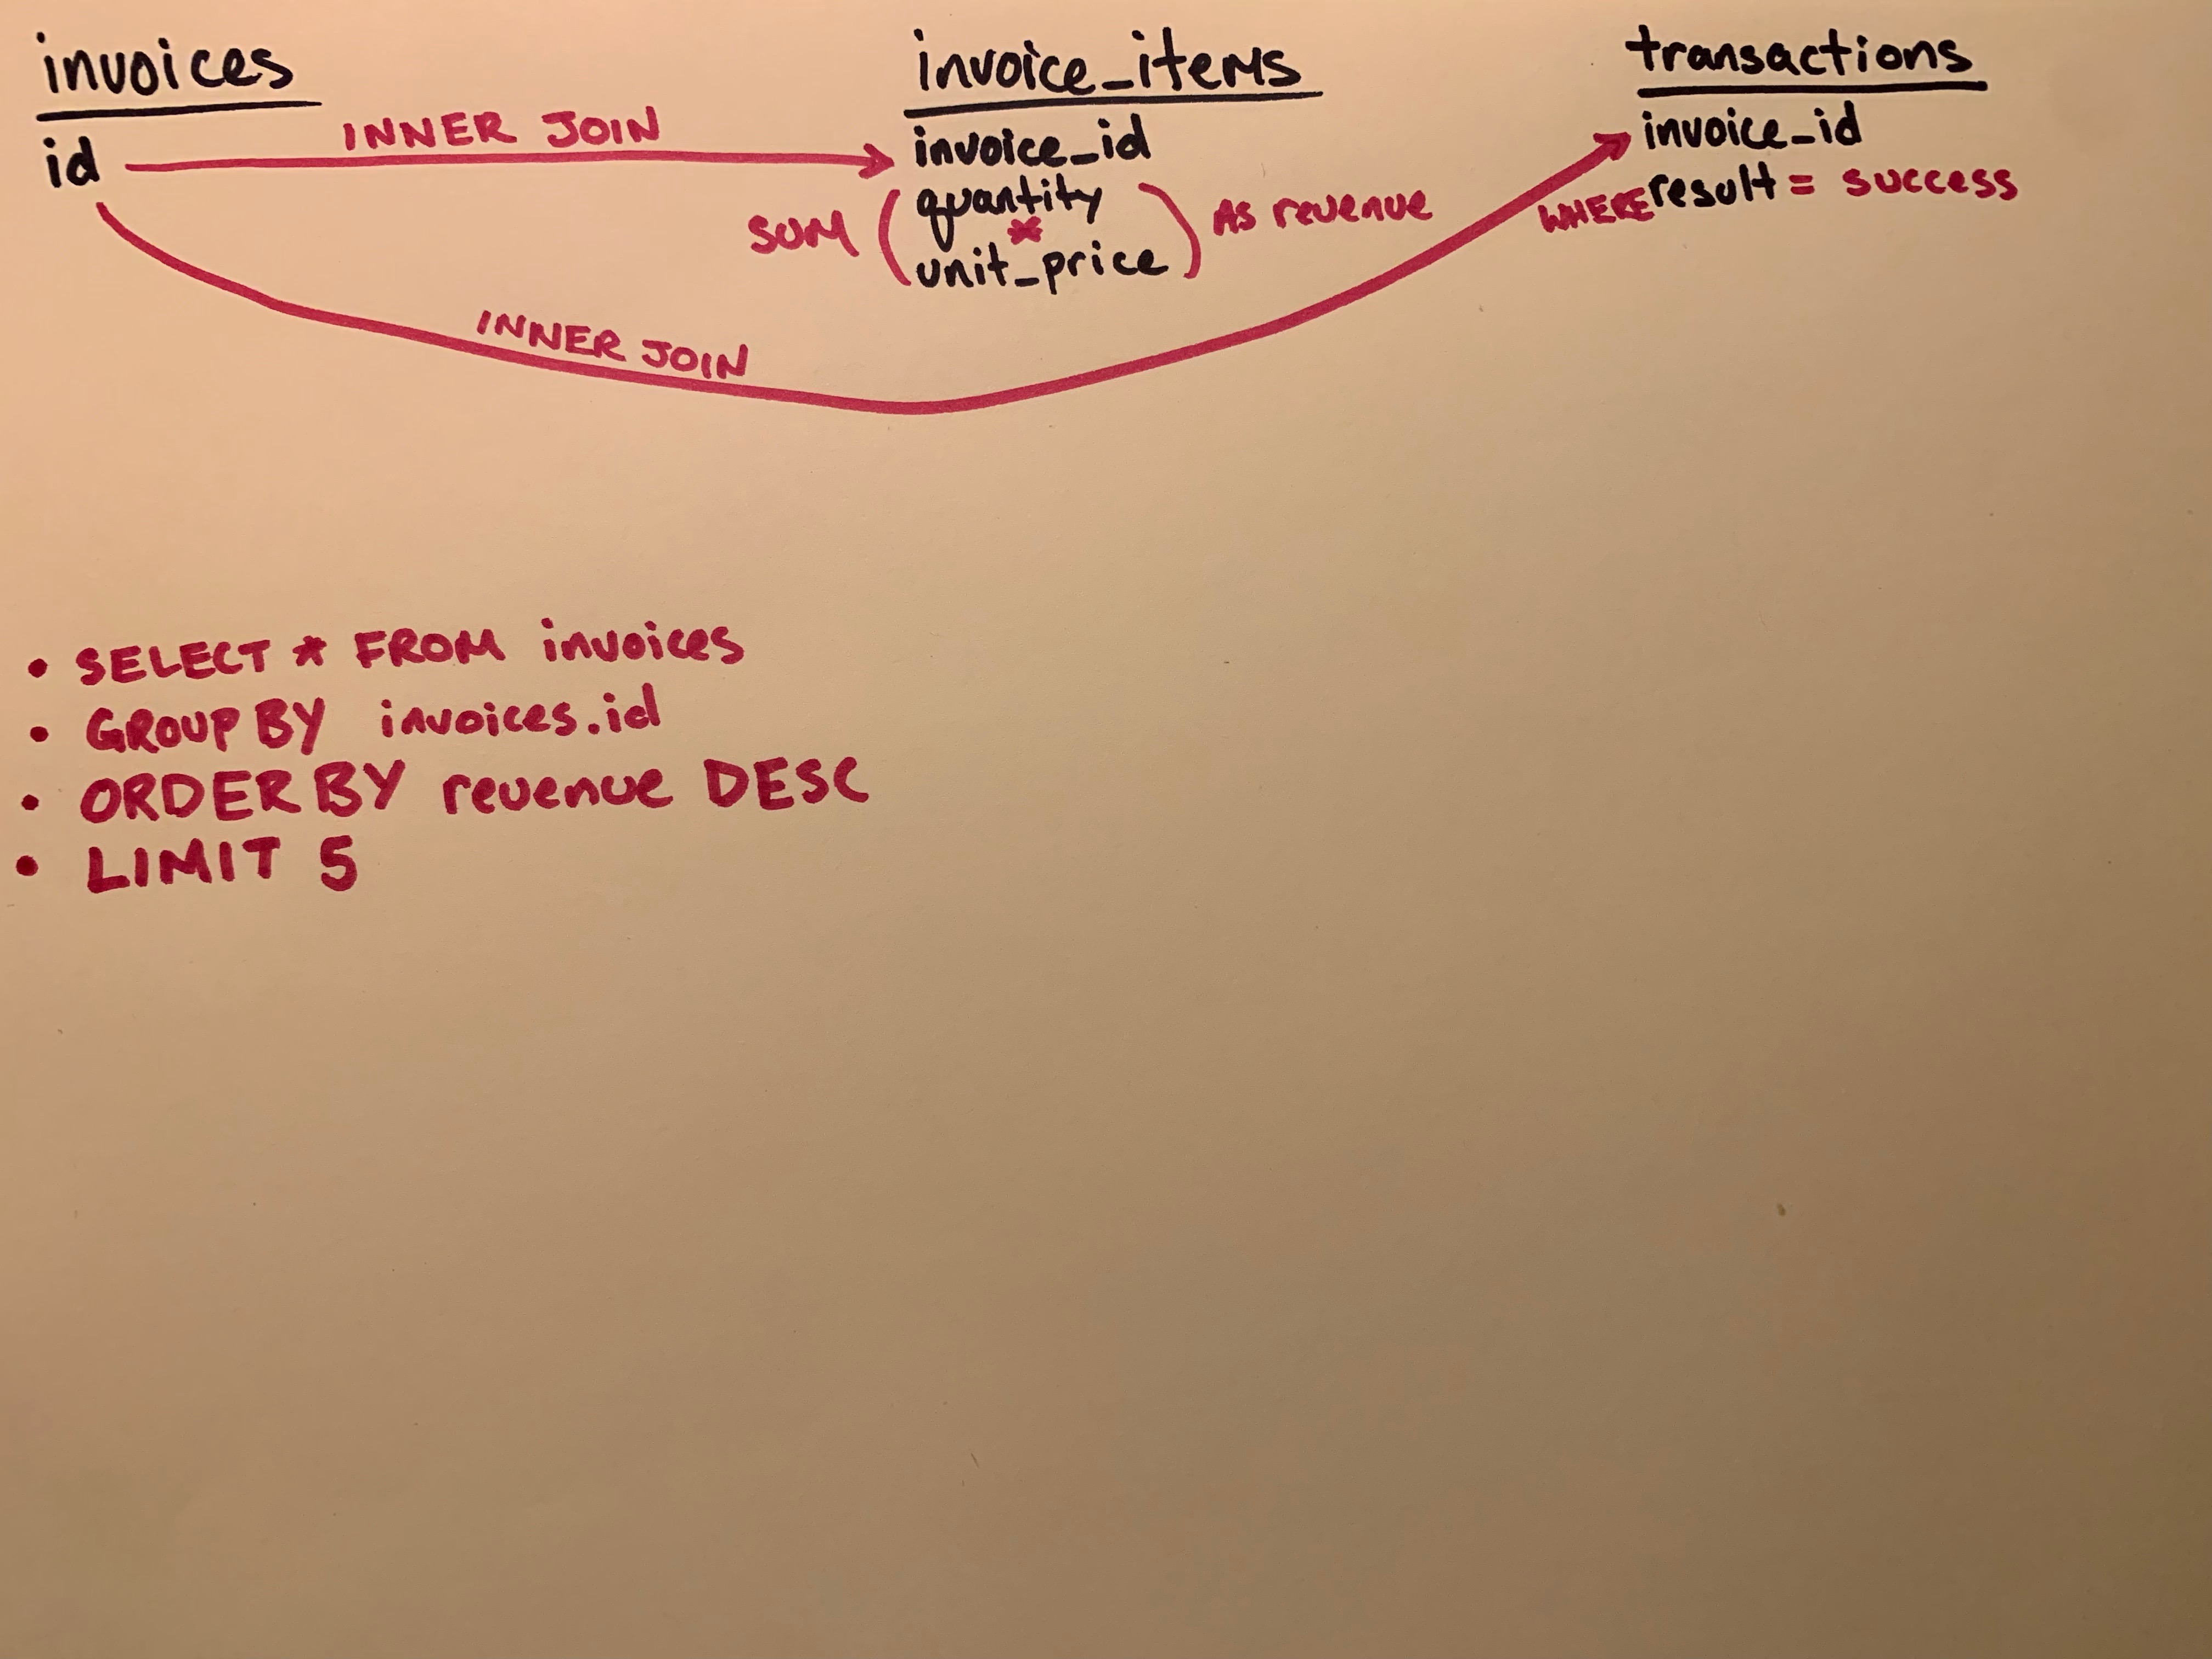 invoices
id
INNER JOIN
invoice_items
invoice_id
SUM ( quantity * unit_price ) AS revenue
INNER JOIN
transactions
invoice_id
WHERE result = success
• SELECT * FROM invoices
• GROUP BY invoices.id
• ORDER BY revenue DESC
• LIMIT 5